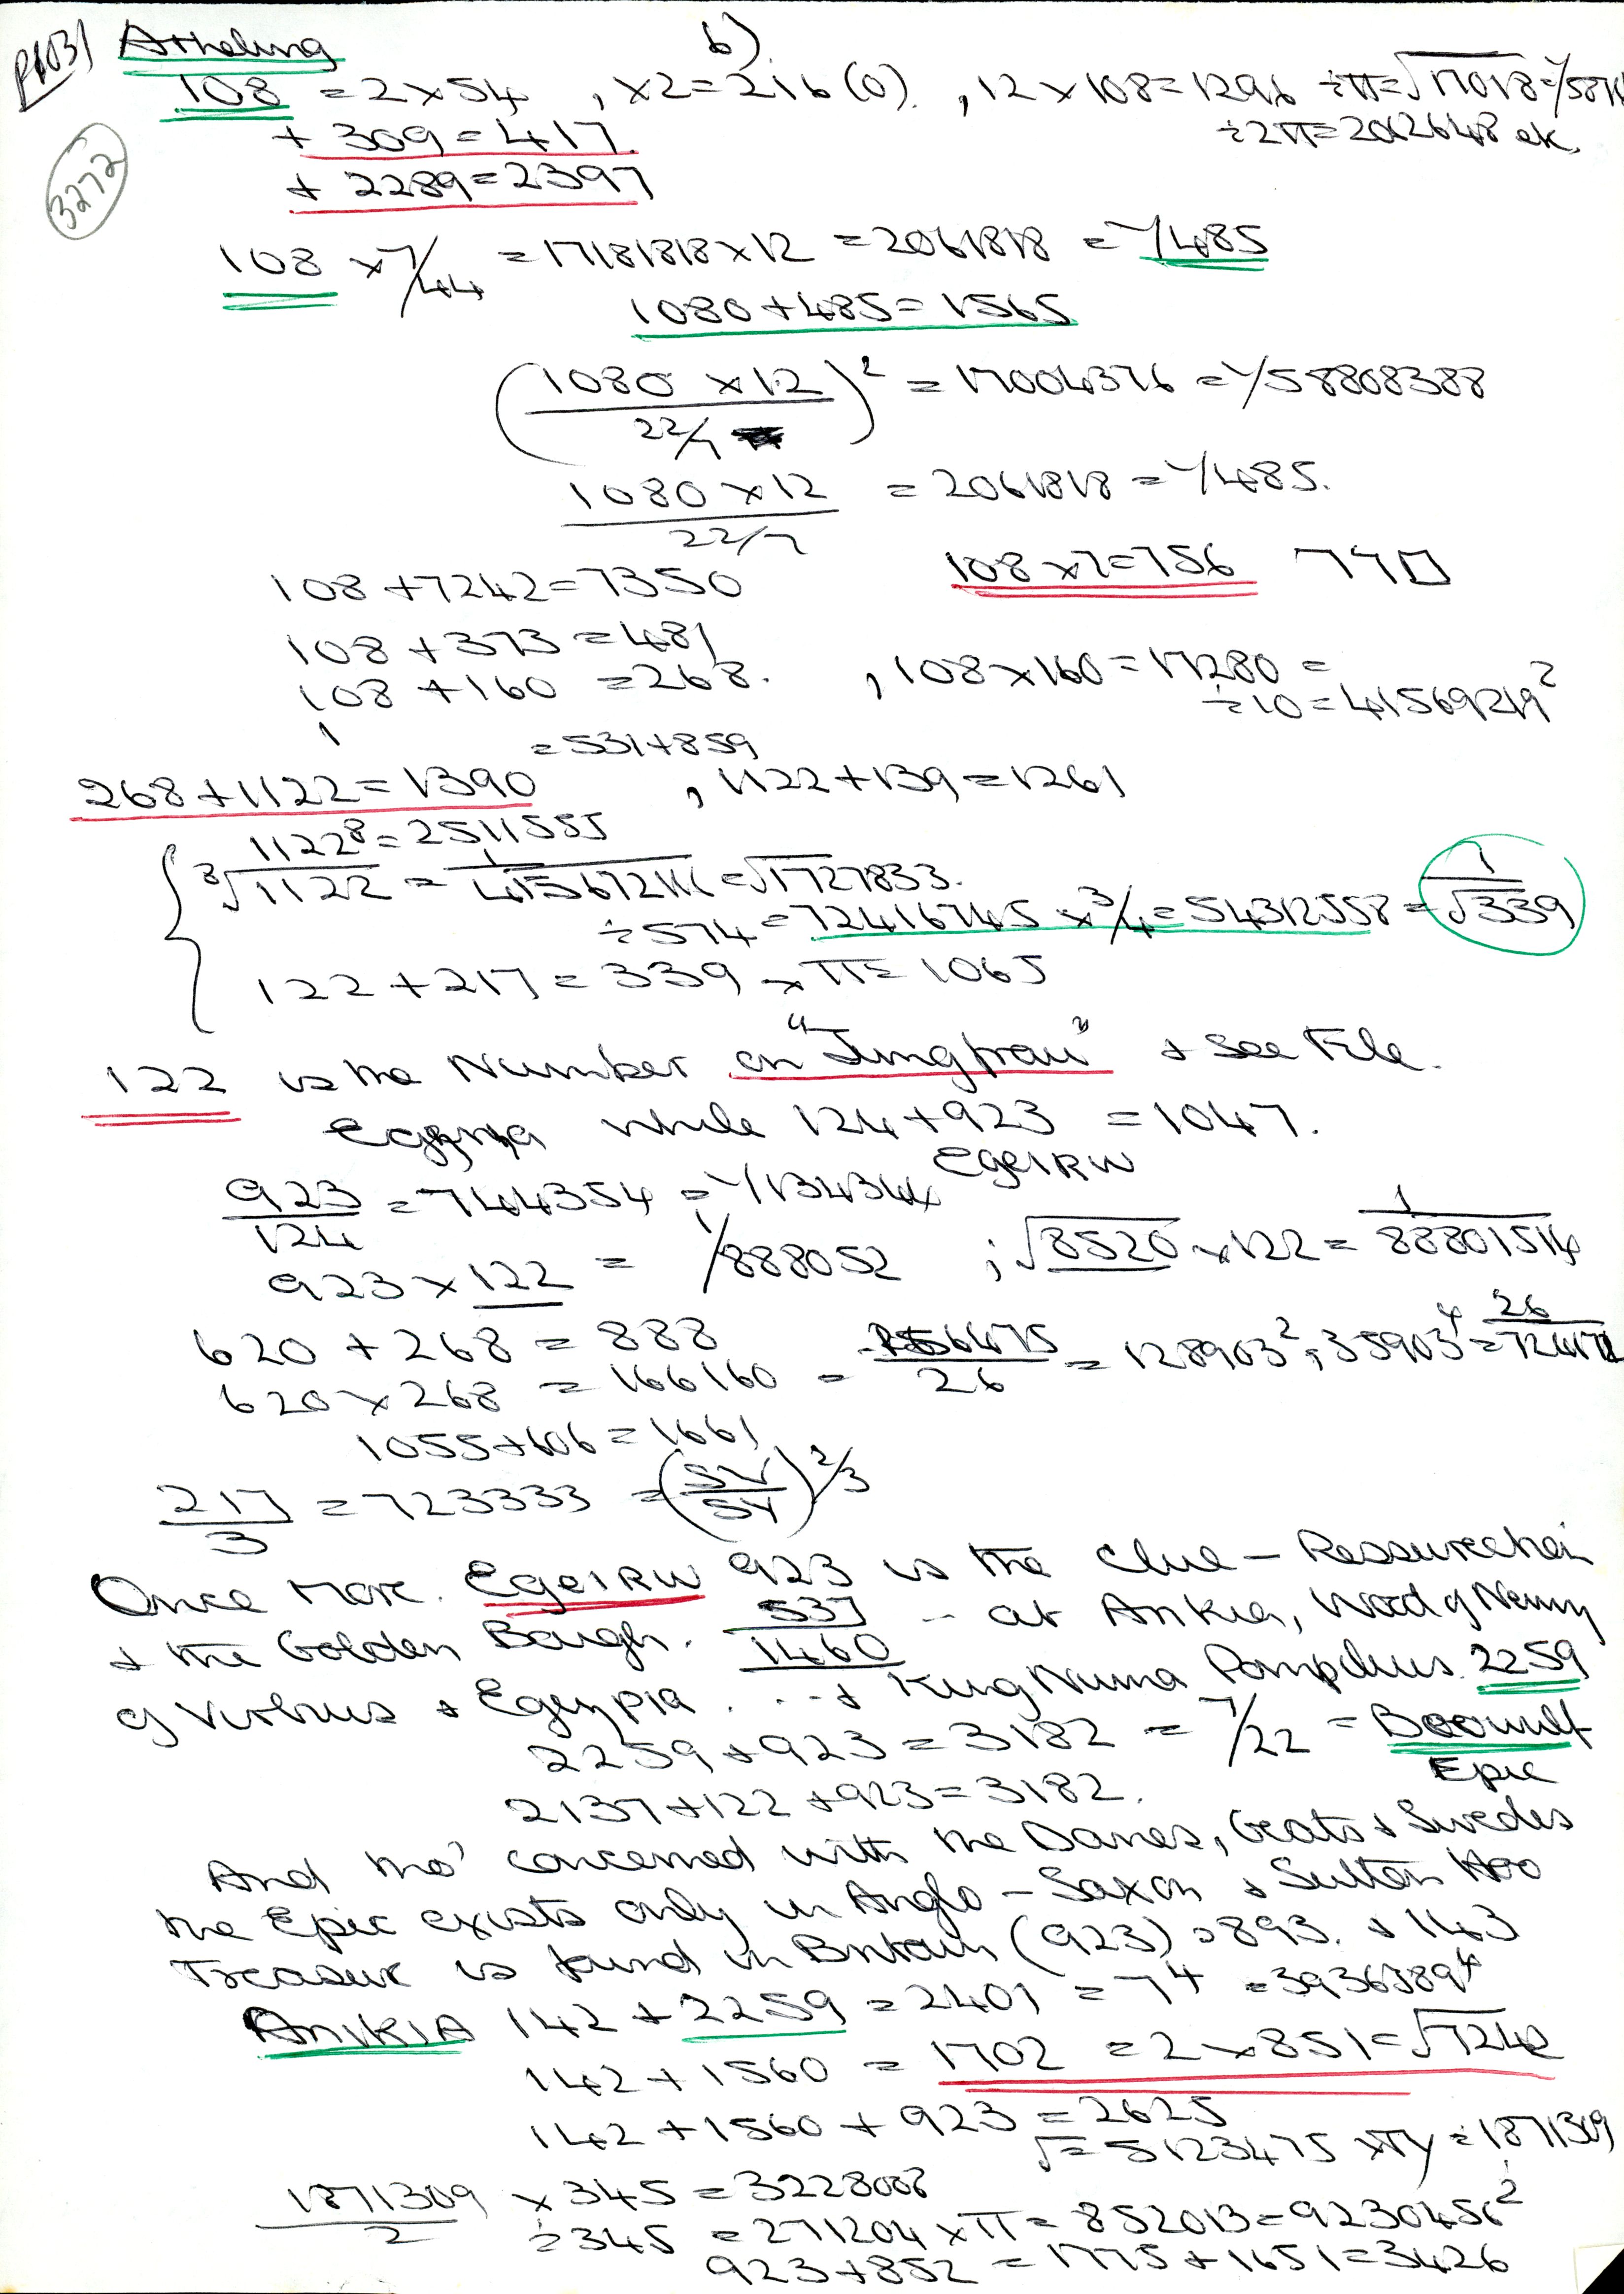 P1031 Atheling b)
108 = 2 × 54 , ×2 = 216 (0). , 12 × 108 = 1296 ÷π = √17018 = 1/5876
÷2π = 2062648 ek.
+ 309 = 417.
3272
+ 2289 = 2397
108 × 7/44 = 17181818 × 12 = 2061818 = 1/485
1080 + 485 = 1565
(1080 × 12 / 22/7)² = 17004376 = 1/58808388
1080 × 12 / 22/7 = 2061818 = 1/485.
108 + 7242 = 7350 108 × 7 = 756
108 + 373 = 481
108 + 160 = 268. , 108 × 160 = 17280 =
÷10 = 41569219²
= 531 + 859
268 + 1122 = 1390 , 1122 + 139 = 1261
1122⁸ = 2511555
³√1122 = = √1727833.
÷574 = 72416745 × 3/4 = 54312558 = 1/√339
122 + 217 = 339 × π = 1065
122 is the Number on "Jungfrau" + see File.
while 124 + 923 = 1047.
EgeIRW
923/124 = 744354 = 1/134344
923 × 122 = 1/888052 ; √8520 × 122 = 1/88801514
620 + 268 = 888
620 × 268 = 166160 = /26 = 128903² , 35903⁴ = 26/
1055 + 606 = 1661
217/3 = 723333 = ( )2/3
Once more. EgeIRW 923 is the Clue - Ressurection
+ the Golden Bough. 537 - at Arikia, Wood of
1460
of Virbius + . . . + King Numa Pompilius. 2259
2259 + 923 = 3182 = 7/22 = Beowulf
Epic
2137 + 122 + 923 = 3182.
And tho' concerned with the Danes, Geats + Swedes
the Epic exists only in Anglo - Saxon + Sutton Hoo
Treasure is found in Britain (923) = 893. + 143
ArIKIA 142 + 2259 = 2401 = 7⁴ = 3936389⁴
142 + 1560 = 1702 = 2 × 851 = √7242
142 + 1560 + 923 = 2625
√ = 5123475 = 1871309
1871309/2 × 345 = 3228008
÷ 345 = 271204 × π = 852013 = 9230456²
923 + 852 = 1775 + 1651 = 3426